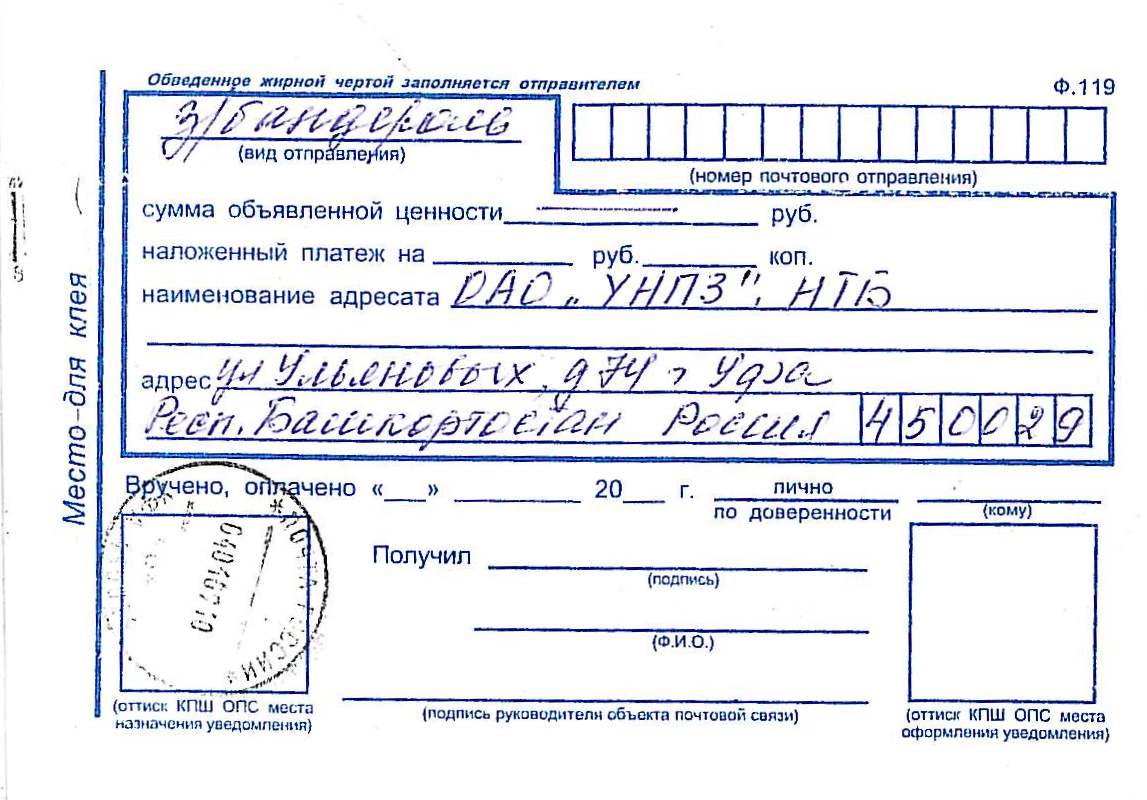 Обведенное жирной чертой заполняется отправителем
Ф.119
з/бандероль
(вид отправления)
(номер почтового отправления)
сумма объявленной ценности — руб.
наложенный платеж на руб. коп.
наименование адресата ОАО „УНПЗ", НТБ
адрес ул Ульяновых, д 74 г Уфа
Респ. Башкортостан Россия 450029
Вручено, оплачено «___» 20___ г. лично
по доверенности
(кому)
Получил
(подпись)
(Ф.И.О.)
(подпись руководителя объекта почтовой связи)
(оттиск КПШ ОПС места
назначения уведомления)
(оттиск КПШ ОПС места
оформления уведомления)
Место для клея
*ПОЧТА РОССИИ*